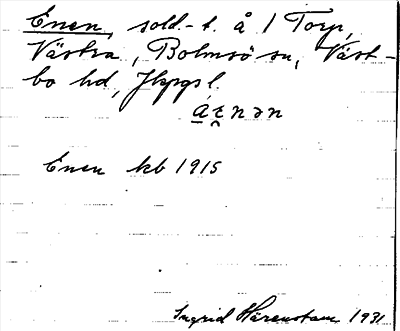 Enen, sold.-t. å 1 Torp,
Västra, Bolmsö sn, Väst-
bo hd, Jkpgs l.
a ɛnən
Enen kb 1915
Ingrid Härenstam 1931